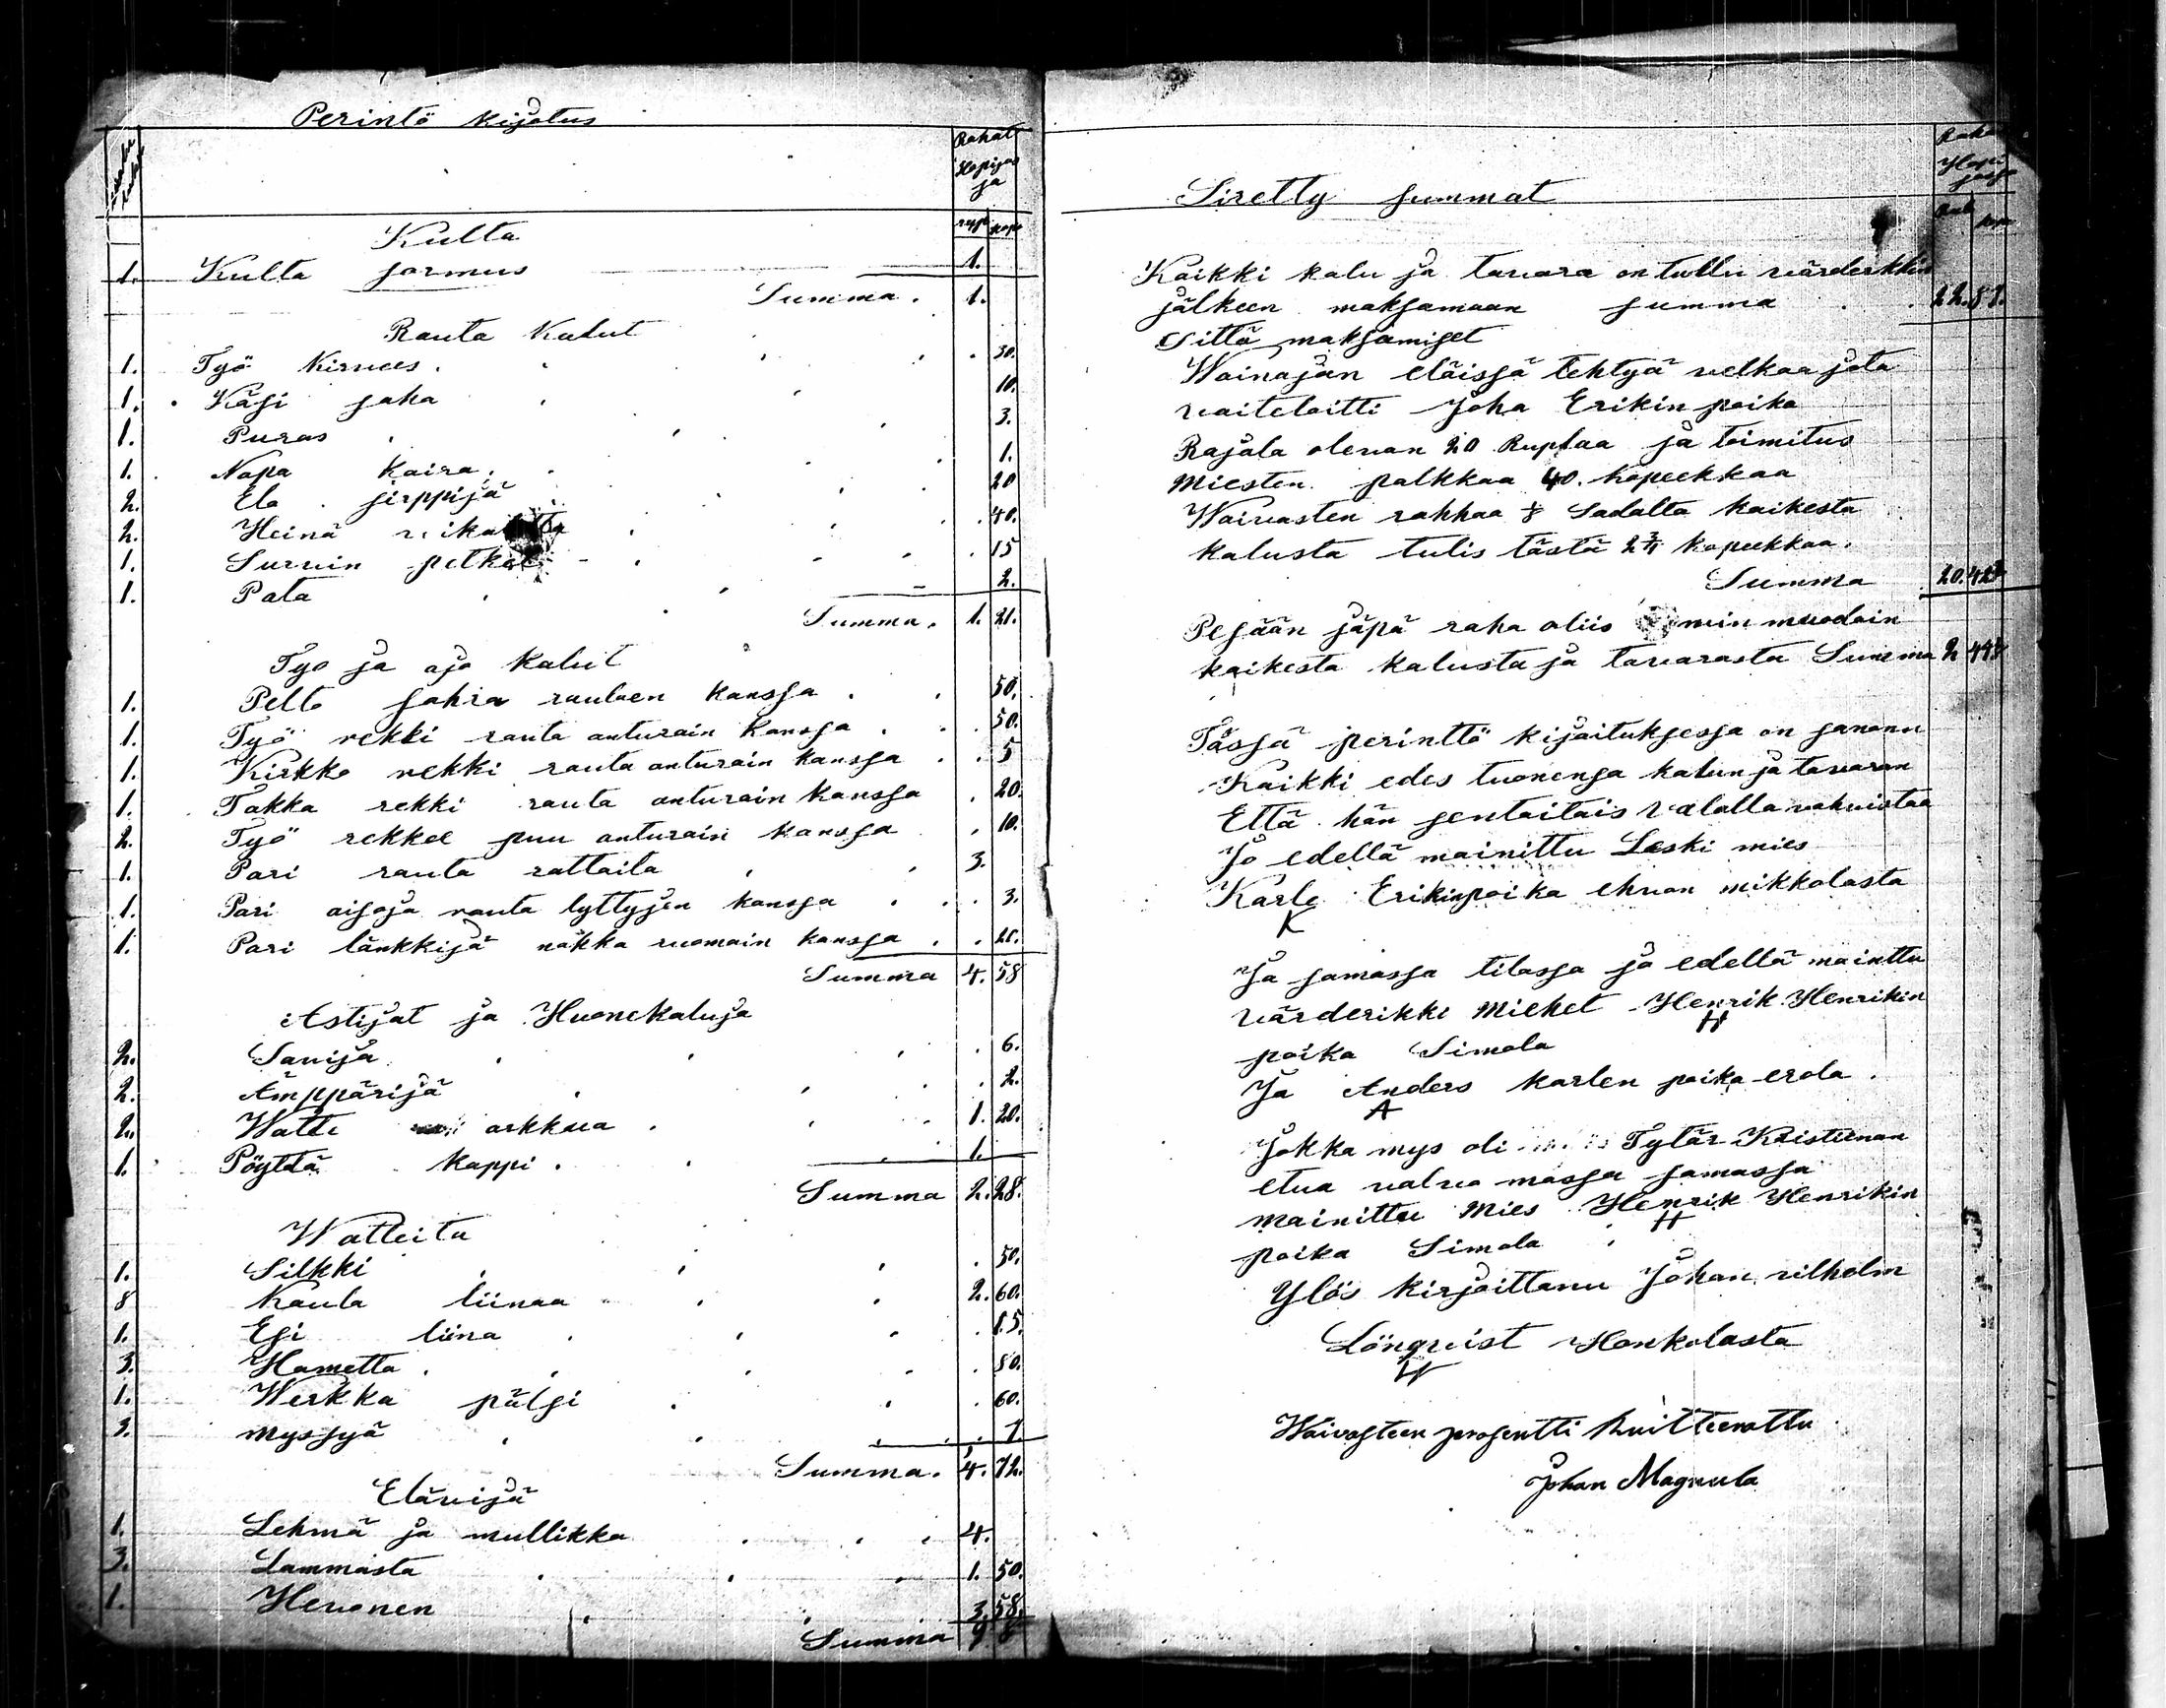 Perintö kijotus
Rahat
Hopijas
ja
rupl kope
Kulta
1. Kulta sormus 1.
Summa. 1.
Rauta Kalut
1. Työ Kirvees. 30.
1. Käsi saha 10.
1. Puras 3.
1. Napa kaira. 1.
2. Ela sirppijä 20
2. Heinä 40.
1. Survin petkel 15
1. Pata 2.
Summa. 1. 21.
Tyo ja ajo kalut
1. Pelto sahra rautaen kanssa. 50.
1. Työ rekki rauta anturain kanssa. 50.
1. Kirkko rekki rauta anturain kanssa. 5
1. Takka rekki rauta anturain kanssa 20.
2. Työ rekkee puu anturain kanssa 10.
1. Pari rauta rattaita 3.
1. Pari aisoja rauta lyttyjen kanssa 3.
1. Pari länkkijä nahka ruomain kanssa. 20.
Summa 4. 58
Astijat ja Huonekaluja
2. Sanija 6.
2. Ämppärijä 2.
2. Watte arkkua. 1. 20.
1. Pöyttä kappi. 1.
Summa 2. 28.
Watteita
1. Silkki 50.
8 Kaula liinaa 2. 60.
1. Esi liina 15.
3. Hametta. 80.
1. Werkka pälsi 60.
3. myssyä 7.
Summa. 4. 72.
Elävijä
1. Lehmä ja mullikka 4.
3. Lammasta 1. 50.
1. Hevonen 3. 58.
Summa 9 8
Siretty summat
Kaikki kalu ja tavara on tullu värderikkin
jälkeen maksamaan summa 22. 87.
Sittä maksamiset
Wainajan eläissä tehtyä velkaa jota
vaiteloitti Joha Erikin poika
Rajala olevan 20 Ruplaa ja toimitus
Miesten palkkaa 40. kopeekkaa
Waivasten rahhaa 1/8 Sadalta kaikesta
kalusta tulis tästä 2 3/4 kopeekkaa.
Summa 20.42 3/4
Pesään jäpä raha oliis muodoin
kaikesta kalusta ja tavarasta Summa 2 44 1/4
Tässä perinttö kijaituksessa on sanonu
Kaikki edes tuonensa kalun ja tavaran
Että hän sentaitais valalla vahvistaa
Jo edellä mainittu Leski mies
Karle Erikinpoika ehvan mikkolasta
K
Ja samassa tilassa ja edellä mainttu
värderikki Miehet Henrik Henrikin
H
poika Simola
Ja Anders karlen poika erola.
A
Jokka mys oli Tytär Kristiinan
etua valvo massa samassa
mainittu Mies Henrik Henrikin
H
poika Simola
Ylös kirjoittanu Johan vilhelm
Lönqvist Honkolasta
Waivasten prosentti kuitteerattu
Johan Magnula